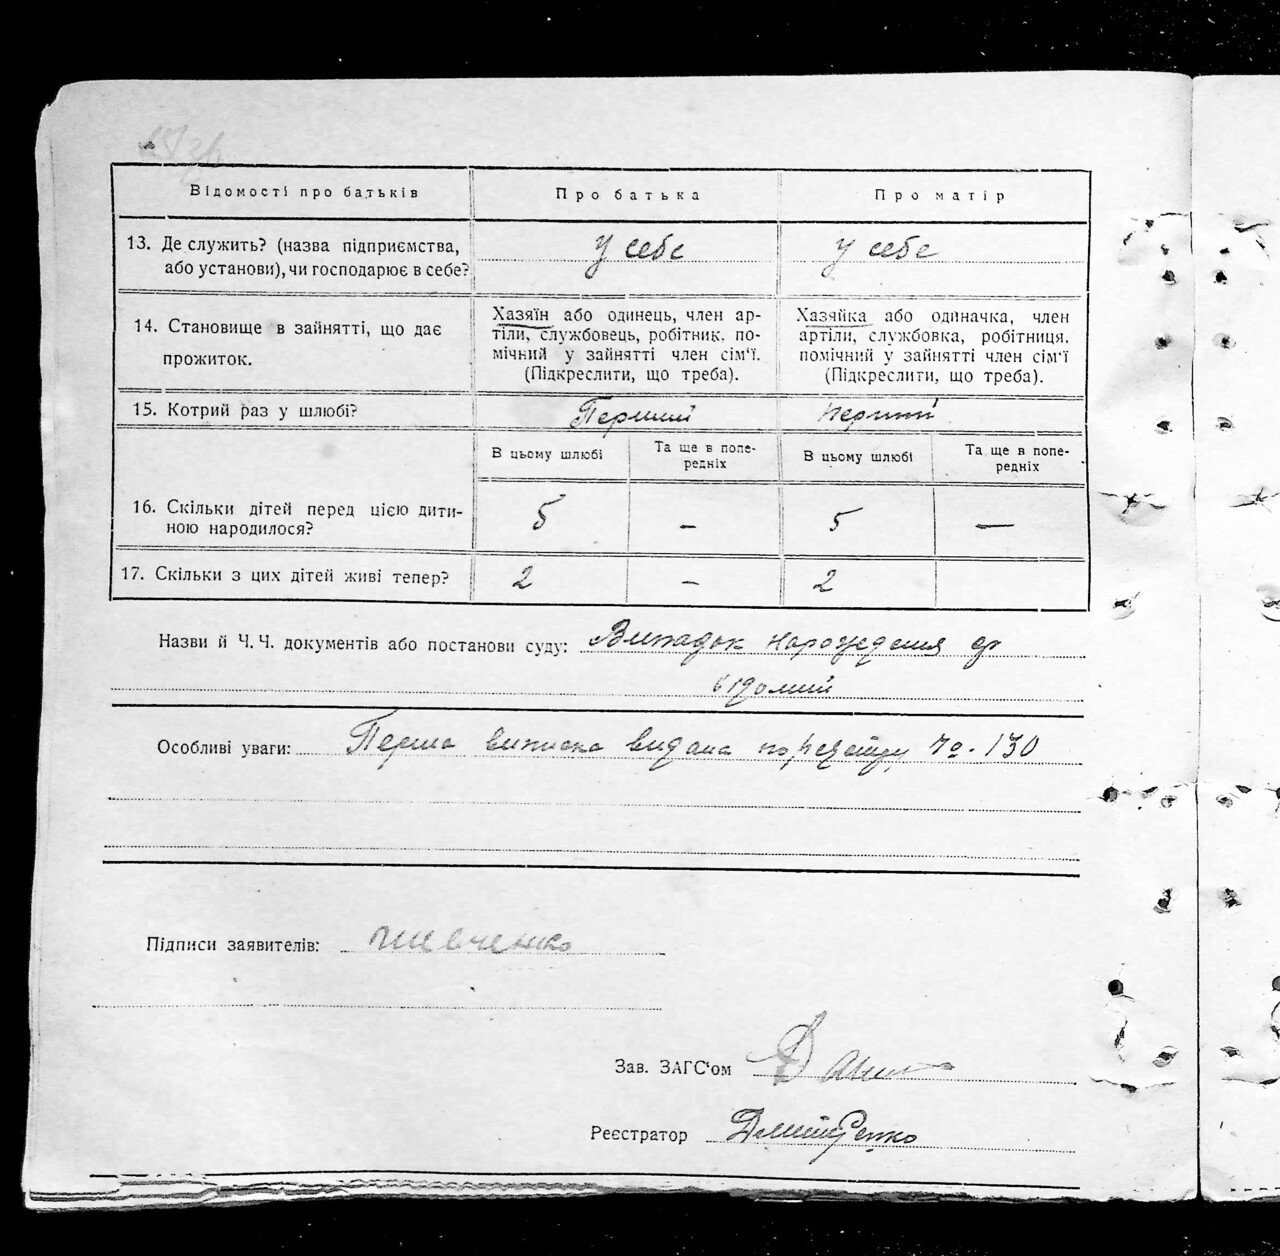 Відомості про батьків Про батька Про матір
13. Де служить? (назва підприємства, або установи), чи господарює в себе? У себе У себе
14. Становище в зайнятті, що дає прожиток.
Хазяїн або одинець, член ар-
тіли, службовець, робітник, по-
мічний у зайнятті член сім'ї.
(Підкреслити, що треба).
Хазяйка або одиначка, член
артіли, службовка, робітниця,
помічний у зайнятті член сім'ї
(Підкреслити, що треба).
15. Котрий раз у шлюбі? Перший Перший
В цьому шлюбі Та ще в попе-
редніх В цьому шлюбі Та ще в попе-
редніх
16. Скільки дітей перед цією дити-
ною народилося? 5 — 5 —
17. Скільки з цих дітей живі тепер? 2 — 2
Назви й Ч. Ч. документів або постанови суду: Випадок народження
відомий
Особливі уваги: Перша виписка видана по реєстру № 130
Підписи заявителів: Шевченко
Зав. ЗАГС'ом
Реєстратор Дмитренко